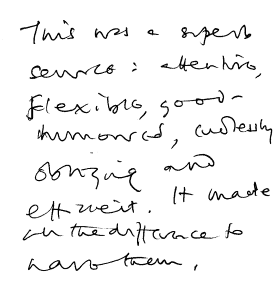 This was a superb
service : attentive,
flexible, good-
humoured, endlessly
obliging and
efficient. It made
all the difference to
have them.